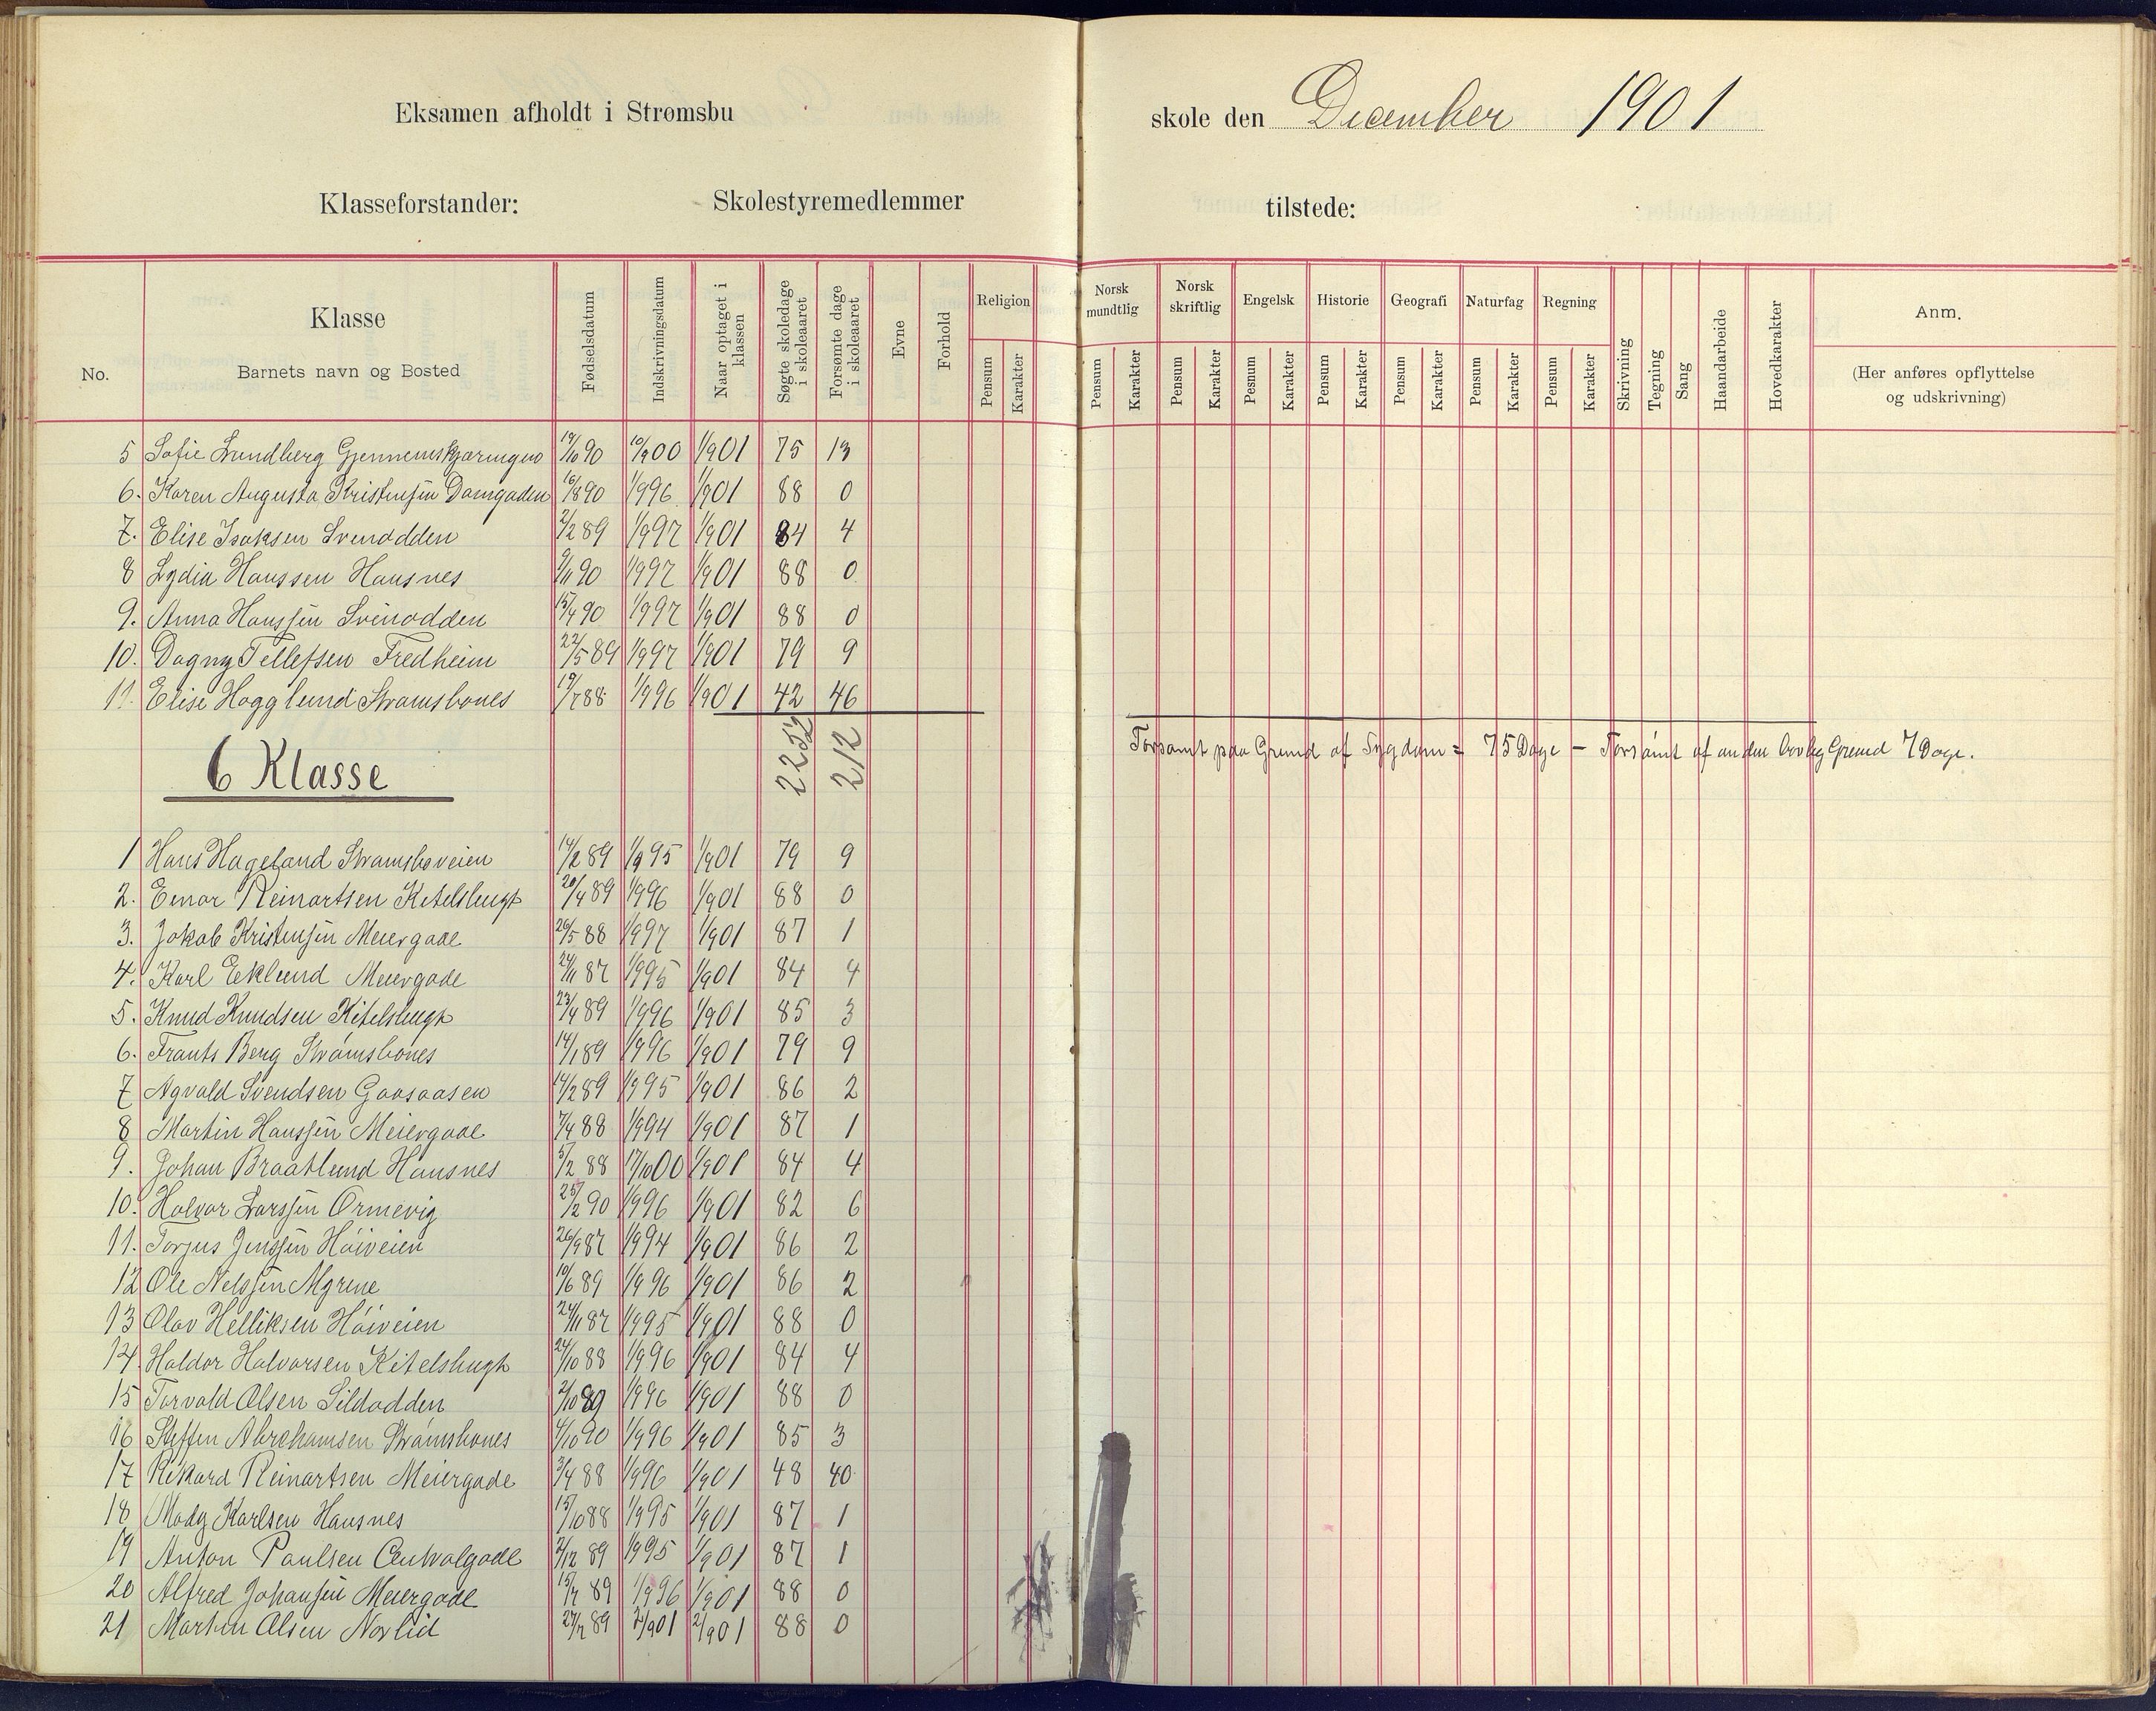 Eksamen afholdt i Strømsbu skole den December 1901
Klasseforstander: Skolestyremedlemmer tilstede:
No. Klasse Barnets navn og Bosted Fødselsdatum Indskrivningsdatum Naar optaget i klassen Søgte skoledage i skoleaaret Forsømte dage i skoleaaret Evne Forhold Religion Norsk mundtlig Norsk skriftlig Engelsk Historie Geografi Naturfag Regning Skrivning Tegning Sang Haandarbeide Hovedkarakter Anm.
(Her anføres opflyttelse og udskrivning)
Pensum Karakter Pensum Karakter Pensum Karakter Pesnum Karakter Pensum Karakter Pensum Karakter Pensum Karakter Pensum Karakter
5 Sofie Lundberg 19/10 90 10/9 00 1/9 01 75 13
6. Karen Augusta Kristensen Damgaden 16/8 90 1/9 96 1/9 01 88 0
7. Elise Isaksen Svinodden 2/2 89 1/9 97 1/9 01 84 4
8 Lydia Hanssen Hansnes 9/11 90 1/9 97 1/9 01 88 0
9. Anna Hanssen Svinodden 15/4 90 1/9 97 1/9 01 88 0
10. Dagny Tellefsen Fredheim 22/5 89 1/9 97 1/9 01 79 9
11. Elise Hagglund Strømsbones 19/7 88 1/9 96 1/9 01 42 46
212
Forsømt paa Grund af Sygdom = 75 Dage – Forsømt af anden lovlig Grund 7 Dage.
6 Klasse
1 Hans Hageland Strømsboveien 14/2 89 1/9 95 1/9 01 79 9
2. Einar Reinartsen Kitelsbugt 20/4 89 1/9 96 1/9 01 88 0
3. Jakob Kristensen Meiergade 26/5 88 1/9 97 1/9 01 87 1
4. Karl Eklund Meiergade 24/11 87 1/9 95 1/9 01 84 4
5. Knud Knudsen Kitelsbugt 23/4 89 1/9 96 1/9 01 85 3
6. Frants Berg Strømsbones 14/1 89 1/9 96 1/9 01 79 9
7 Agvald Svendsen Gaasaasen 14/2 89 1/9 95 1/9 01 86 2
8 Martin Hanssen Meiergade 7/4 88 1/9 94 1/9 01 87 1
9. Johan Braatlund Hansnes 5/2 88 17/10 00 1/9 01 84 4
10. Halvor Larssen Ormevig 25/2 90 1/9 96 1/9 01 82 6
11. Torjus Jenssen Høiveien 26/9 87 1/9 94 1/9 01 86 2
12 Ole Nelssen Myrene 10/6 89 1/9 96 1/9 01 86 2
13 Olav Helliksen Høiveien 24/11 87 1/9 95 1/9 01 88 0
14. Haldor Halvorsen Kitelsbugt 24/10 88 1/9 96 1/9 01 84 4
15 Torvald Olsen Sildodden 2/10 89 1/9 96 1/9 01 88 0
16 Steffen Abrehamsen Strømsbones 4/10 90 1/9 96 1/9 01 85 3
17 Rikard Reinartsen Meiergade 3/4 88 1/9 96 1/9 01 48 40
18 Karlsen Hansnes 15/10 88 1/9 95 1/9 01 87 1
19 Anton Paulsen Centralgade 2/12 89 1/9 95 1/9 01 87 1
20 Alfred Johansen Meiergade 15/7 89 1/9 96 1/9 01 88 0
21 Martin Olsen Norlid 27/7 89 2/9 01 2/9 01 88 0